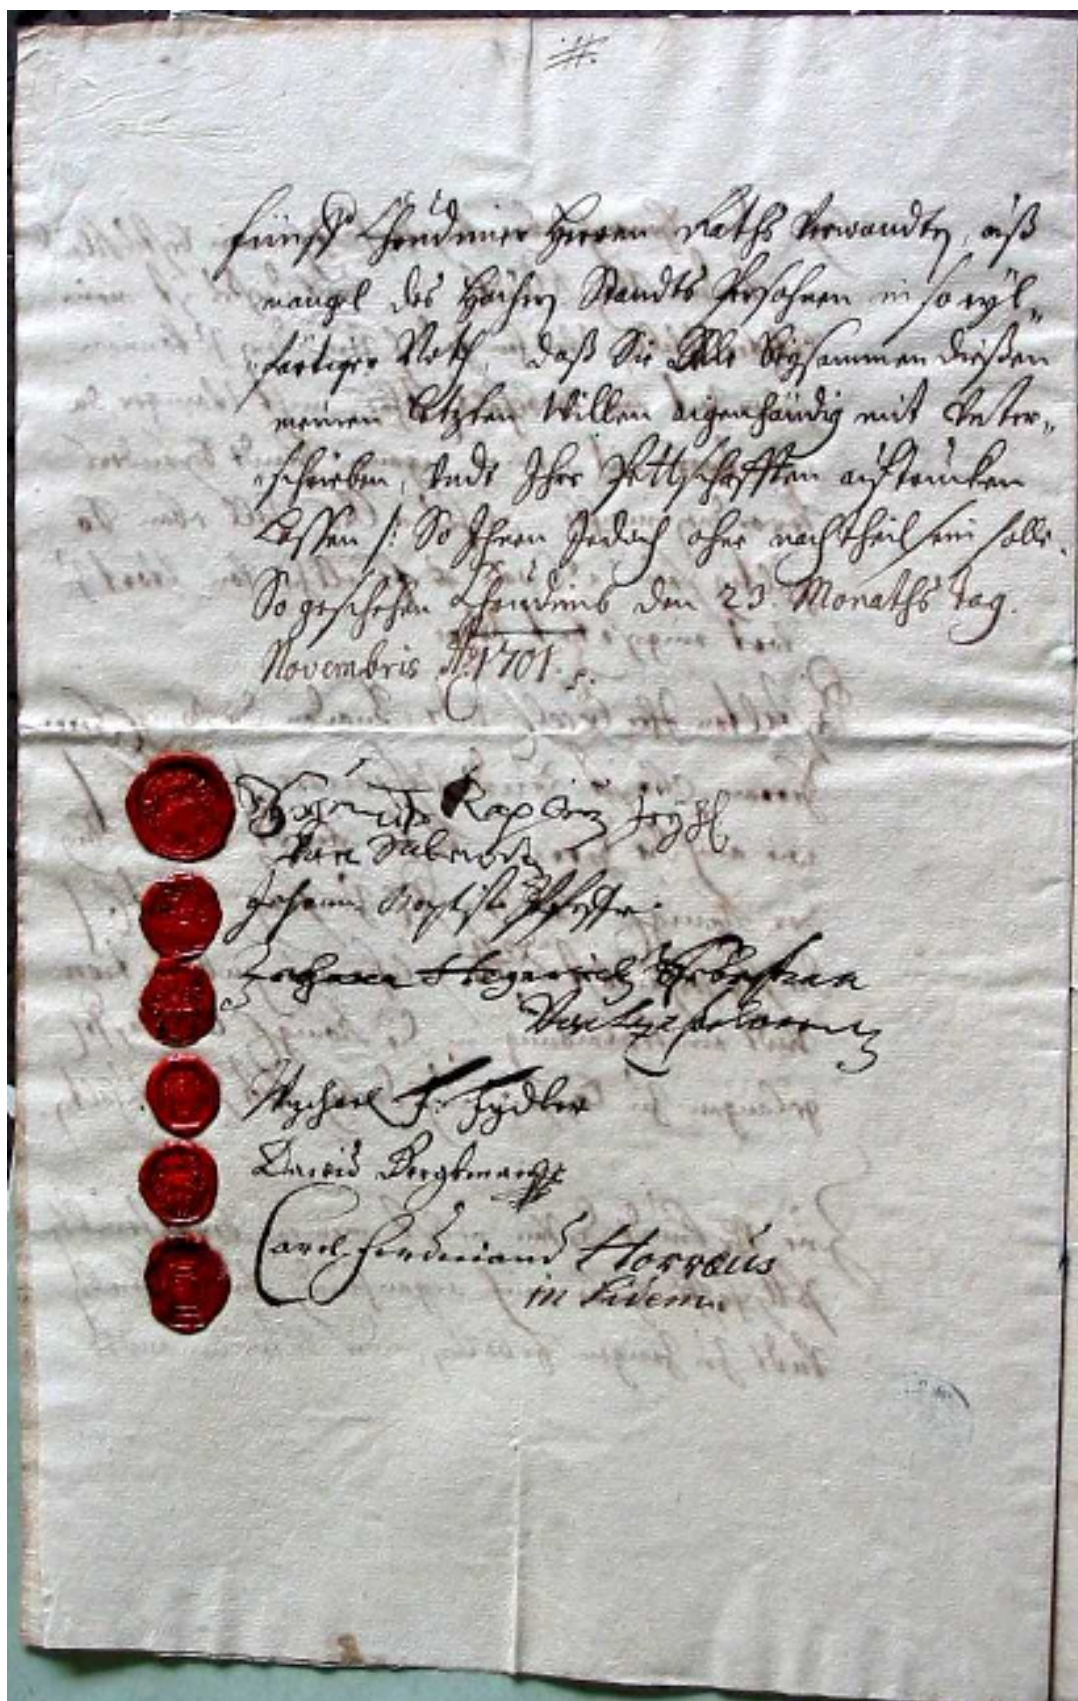 fünff Chrudimer Herren Raths Verwandten, auß
mangel des Höhern Standts Persohnen in so eyl„
„färtiger Noth, daß Sie Alle Beysammen dießen
meinen letzten Willen aigenhändig mit Unter„
„schrieben, Undt Ihre Pettschafften auftrucken
Lassen /: So Ihnen Jedoch ohne nachtheil sein solle.
So geschehen Chrudimb den 23. Monaths tag.
Novembris Ao. 1701.
Kaplirz
Von
Johann Baptista
Johann
Von
Mychael F. Fydler
David Bergkman
Carl Ferdinand Horræus
in Fidem